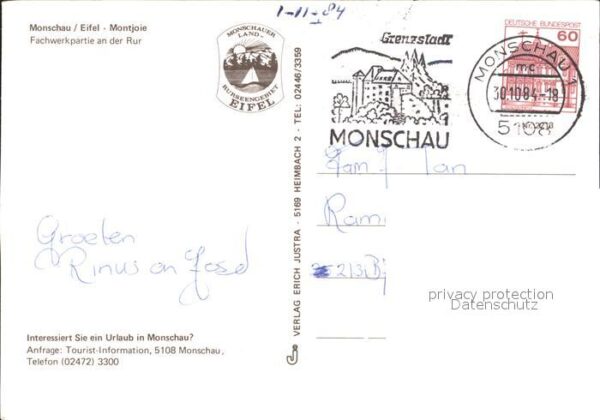 Monschau / Eifel - Montjoie
Fachwerkpartie an der Rur
MONSCHAUER
LAND-
RURSEENGEBIET
EIFEL
1-11-84
Grenzstadt
MONSCHAU
MONSCHAU 1
mc
30.10.84.-18
5108
DEUTSCHE BUNDESPOST
60
VERLAG ERICH JUSTRA · 5169 HEIMBACH 2 · TEL: 02446/3359
Fam
Ram
213
Groeten
Rinus en José
privacy protection
Datenschutz
Interessiert Sie ein Urlaub in Monschau?
Anfrage: Tourist-Information, 5108 Monschau,
Telefon (02472) 3300